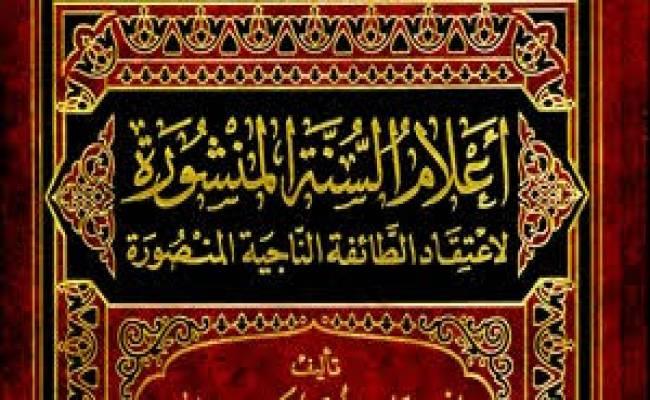 أعلام السنة المنشورة
لاعتقاد الطائفة الناجية المنصورة
تأليف